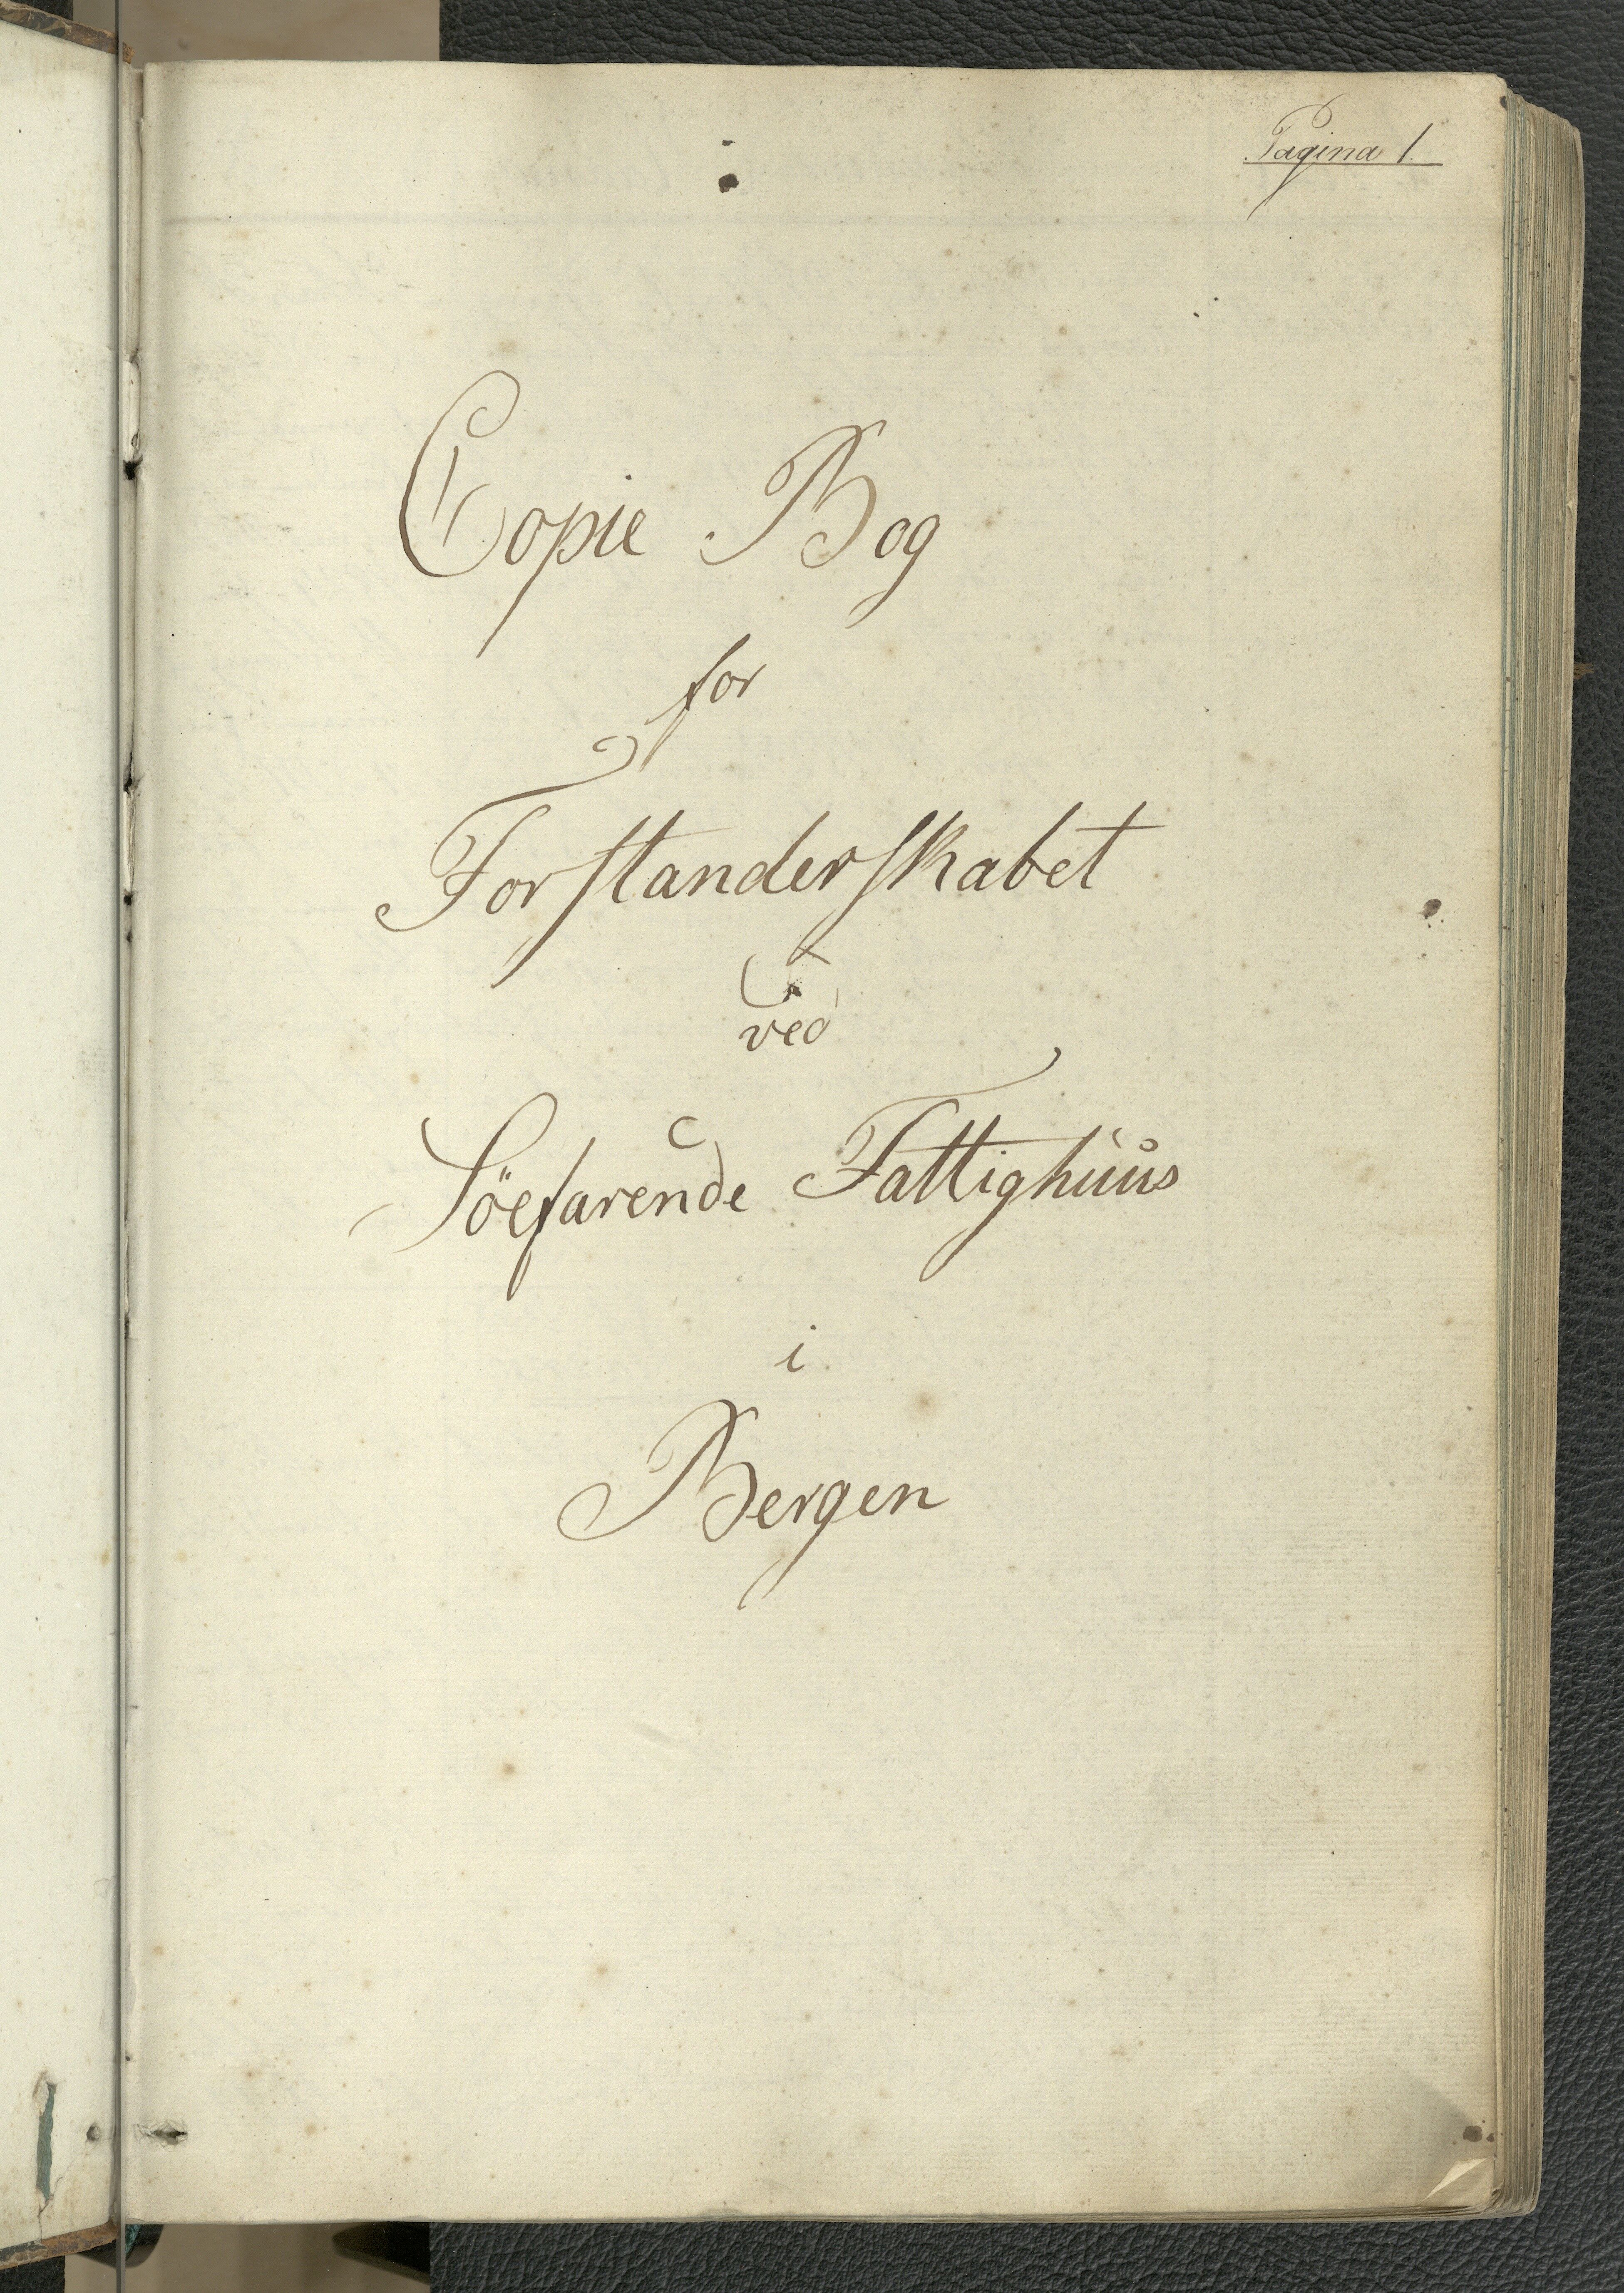 Pagina 1.
Copie Bog
for
Forstanderskabet
ved
Söefarende Fattighuus
i
Bergen